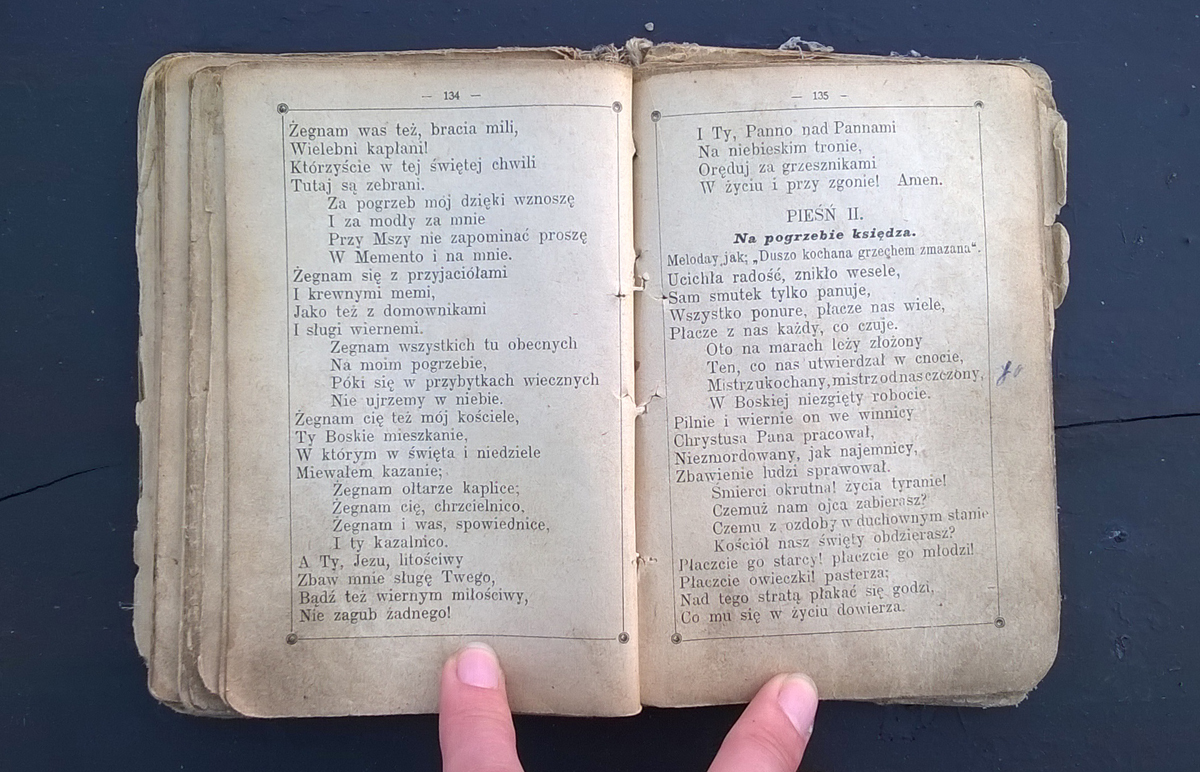 — 134 —
Żegnam was też, bracia mili,
Wielebni kapłani!
Którzyście w tej świętej chwili
Tutaj są zebrani.
Za pogrzeb mój dzięki wznoszę
I za modły za mnie
Przy Mszy nie zapominać proszę
W Memento i na mnie.
Żegnam się z przyjaciółami
I krewnymi memi,
Jako też z domownikami
I sługi wiernemi.
Żegnam wszystkich tu obecnych
Na moim pogrzebie,
Póki się w przybytkach wiecznych
Nie ujrzemy w niebie.
Żegnam cię też mój kościele,
Ty Boskie mieszkanie,
W którym w święta i niedziele
Miewałem kazanie;
Żegnam ołtarze kaplice;
Żegnam cię, chrzcielnico,
Żegnam i was, spowiednice,
I ty kazalnico.
A Ty, Jezu, litościwy
Zbaw mnie sługę Twego,
Bądź też wiernym miłościwy,
Nie zagub żadnego!
— 135 —
I Ty, Panno nad Pannami
Na niebieskim tronie,
Oręduj za grzesznikami
W życiu i przy zgonie! Amen.
PIEŚŃ II.
Na pogrzebie księdza.
Meloday jak; „Duszo kochana grzechem zmazana“.
Ucichła radość, znikło wesele,
Sam smutek tylko panuje,
Wszystko ponure, płacze nas wiele,
Płacze z nas każdy, co czuje.
Oto na marach leży złożony
Ten, co nas utwierdzał w cnocie,
Mistrz ukochany, mistrz od nas czczony,
W Boskiej niezgięty robocie.
Pilnie i wiernie on we winnicy
Chrystusa Pana pracował,
Niezmordowany, jak najemnicy,
Zbawienie ludzi sprawował.
Śmierci okrutna! życia tyranie!
Czemuż nam ojca zabierasz?
Czemu z ozdoby w duchownym stanie
Kościół nasz święty obdzierasz?
Płaczcie go starcy! płaczcie go młodzi!
Płaczcie owieczki! pasterza;
Nad tego stratą płakać się godzi,
Co mu się w życiu dowierza.